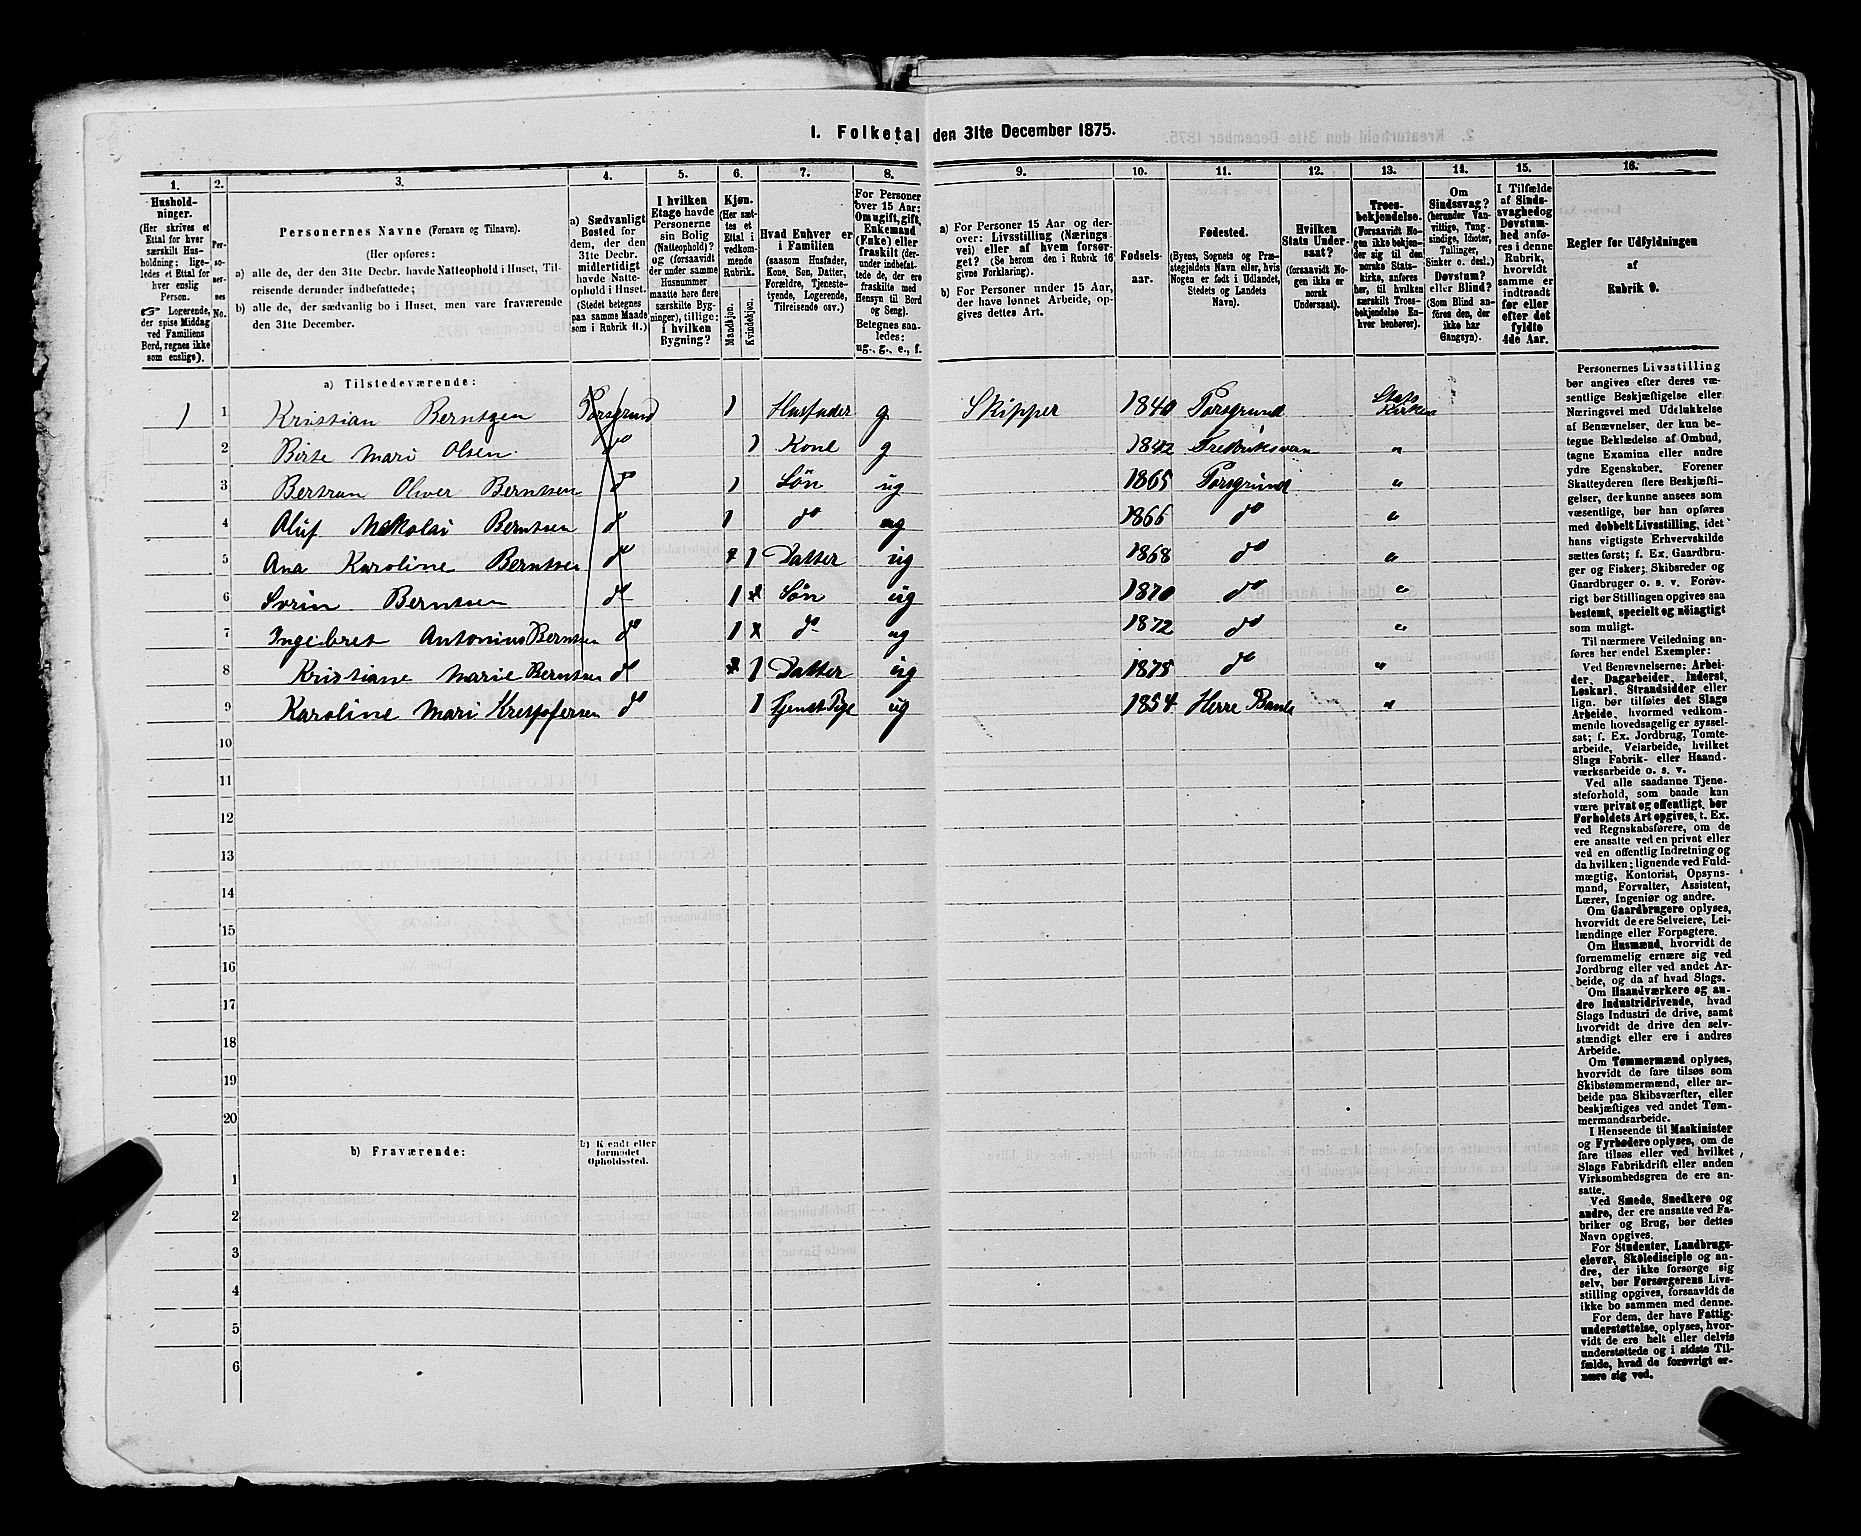 1. Folketal den 31te December 1875.
1. 2. 3. 4. 5. 6. 7. 8. 9. 10. 11. 12. 13. 14. 15. 16.
Hushold-
ninger.
(Her skrives et
Ettal for hver
særskilt Hus-
holdning; lige-
ledes et Ettal for
hver enslig
Person.
☞ Logerende,
der spise Middag
ved Familiens
Bord, regnes ikke
som enslige).
Per-
so-
ner-
nes
No.
Personernes Navne (Fornavn og Tilnavn).
(Her opføres:
a) alle de, der den 31te Decbr. havde Natteophold i Huset, Til-
reisende derunder indbefattede;
b) alle de, der sædvanlig bo i Huset, men vare fraværende
den 31te December.
a) Sædvanligt
Bosted for
dem, der den
31te Decbr.
midlertidigt
havde Natte-
ophold i Huset.
(Stedet betegnes
paa samme Maade
som i Rubrik 11.)
I hvilken
Etage havde
Personerne
sin Bolig
(Natteophold)?
og (forsaavidt
der under samme
Husnummer
maatte høre flere
særskilte Byg-
ninger), tillige:
i hvilken
Bygning?
Kjøn.
(Her sæt-
tes et
Ettal i
vedkom-
mende
Rubrik.
Mandkjøn.
Kvindekjøn.
Hvad Enhver er
i Familien
(saasom Husfader,
Kone, Søn, Datter,
Forældre, Tjeneste-
tyende, Logerende,
Tilreisende osv.)
For Personer
over 15 Aar:
Om ugift, gift,
Enkemand
(Enke) eller
fraskilt (der-
under indbefat-
tede de, der ere
fraskilte med
Hensyn til Bord
og Seng).
Betegnes saa-
ledes:
ug., g., e., f.
a) For Personer 15 Aar og der-
over: Livsstilling (Nærings-
vei) eller af hvem forsør-
get? (Se herom den i Rubrik 16
givne Forklaring).
b) For Personer under 15 Aar,
der have lønnet Arbeide, op-
gives dettes Art.
Fødsels-
aar.
Fødested.
(Byens, Sognets og Præs-
tegjeldets Navn eller, hvis
Nogen er født i Udlandet,
Stedets og Landets
Navn).
Hvilken
Stats Under-
saat?
(forsaavidt No-
gen ikke er
norsk
Undersaat).
Troes-
bekjendelse.
(Forsaavidt No-
gen ikke bekjen-
der sig til den
norske Stats-
kirke, anføres
her, til hvilken
særskilt Troes-
bekjendelse En-
hver henhører).
Om
Sindssvag?
(herunder Van-
vittige, Tung-
sindige, Idioter,
Tullinger,
Sinker o. desl.)
Døvstum?
eller Blind?
(Som Blind an-
føres den, der
ikke har
Gangsyn).
I Tilfælde
af Sinds-
svaghed og
Døvstum-
hed anfø-
res i denne
Rubrik,
hvorvidt
samme er
indtraadt
før eller
efter det
fyldte
4de Aar.
Regler for Udfyldningen
af
Rubrik 9.
a) Tilstedeværende:
1 1 Kristian Berntzen Porsgrund 1 Husfader g Skipper 1840 Porsgrund Stats Kirken
2 Birte Mari Olsen do 1 Kone g 1842 Fredriksværn "
3 Bertran Oliver Berntsen do 1 Søn ug 1865 Porsgrund "
4 Oluf Nikolai Berntsen do 1 do ug 1866 do "
5 Ana Karoline Berntsen do 1 Datter ug 1868 do "
6 Sørin Berntsen do 1 Søn ug 1870 do "
7 Ingebret Antonius Berntsen do 1 do ug 1872 do "
8 Kristiane Marie Berntsen do 1 Datter ug 1875 do "
9 Karoline Mari Kristofersen do 1 Tjenst Pige ug 1854 Herre Bamle "
10
11
12
13
14
15
16
17
18
19
20
b) Fraværende:
b) Kjendt eller
formodet
Opholdssted.
1
2
3
4
5
6
Personernes Livsstilling
bør angives efter deres væ-
sentlige Beskjæftigelse eller
Næringsvei med Udelukkelse
af Benævnelser, der kun be-
tegne Beklædelse af Ombud,
tagne Examina eller andre
ydre Egenskaber. Forener
Skatteyderen flere Beskjæfti-
gelser, der kunne ansees som
væsentlige, bør han opføres
med dobbelt Livsstilling, idet
hans vigtigste Erhvervskilde
sættes først; f. Ex. Gaardbru-
ger og Fisker; Skibsreder og
Gaardbruger o. s. v. Forøv-
rigt bør Stillingen opgives saa
bestemt, specielt og nøiagtigt
som muligt.
Til nærmere Veiledning an-
føres her endel Exempler:
Ved Benævnelserne: Arbei-
der, Dagarbeider, Inderst,
Løskarl, Strandsidder eller
lign. bør tilføies det Slags
Arbeide, hvormed vedkom-
mende hovedsagelig er syssel-
sat; f. Ex. Jordbrug, Tomte-
arbeide, Veiarbeide, hvilket
Slags Fabrik- eller Haand-
værksarbeide o. s. v.
Ved alle saadanne Tjene-
steforhold, som baade kan
være privat og offentligt, bør
Forholdets Art opgives, t. Ex.
ved Regnskabsførere, om de
ere ansatte ved en privat eller
ved en offentlig Indretning og
da hvilken; lignende ved Fuld-
mægtig, Kontorist, Opsyns-
mand, Forvalter, Assistent,
Lærer, Ingeniør og andre.
Om Gaardbrugere oplyses,
hvorvidt de ere Selveiere, Lei-
lændinge eller Forpagtere.
Om Husmænd, hvorvidt de
fornemmelig ernære sig ved
Jordbrug eller ved andet Ar-
beide, og da af hvad Slags.
Om Haandværkere og an-
dre Industridrivende, hvad
Slags Industri de drive, samt
hvorvidt de drive den selv-
stændigt eller ere i andres
Arbeide.
Om Tømmermænd oplyses,
hvorvidt de fare tilsøs som
Skibstømmermænd, eller ar-
beide paa Skibsværfter, eller
beskjæftiges ved andet Tøm-
mermandsarbeide.
I Henseende til Maskinister
og Fyrbødere oplyses, om de
fare tilsøs eller ved hvilket
Slags Fabrikdrift eller anden
Virksomhedsgren de ere an-
satte.
Ved Smede, Snedkere og
andre, der ere ansatte ved Fa-
briker og Brug, bør dettes
Navn opgives.
For Studenter, Landbrugs-
elever, Skoledisciple og an-
dre, der ikke forsørge sig
selv, bør Forsørgerens Livs-
stilling opgives, forsaavidt de
ikke bo sammen med denne.
For dem, der have Fattig-
understøttelse, oplyses, hvor-
vidt de ere helt eller delvis
understøttede og i sidste Til-
fælde, hvad de forøvrigt er-
nære sig ved.